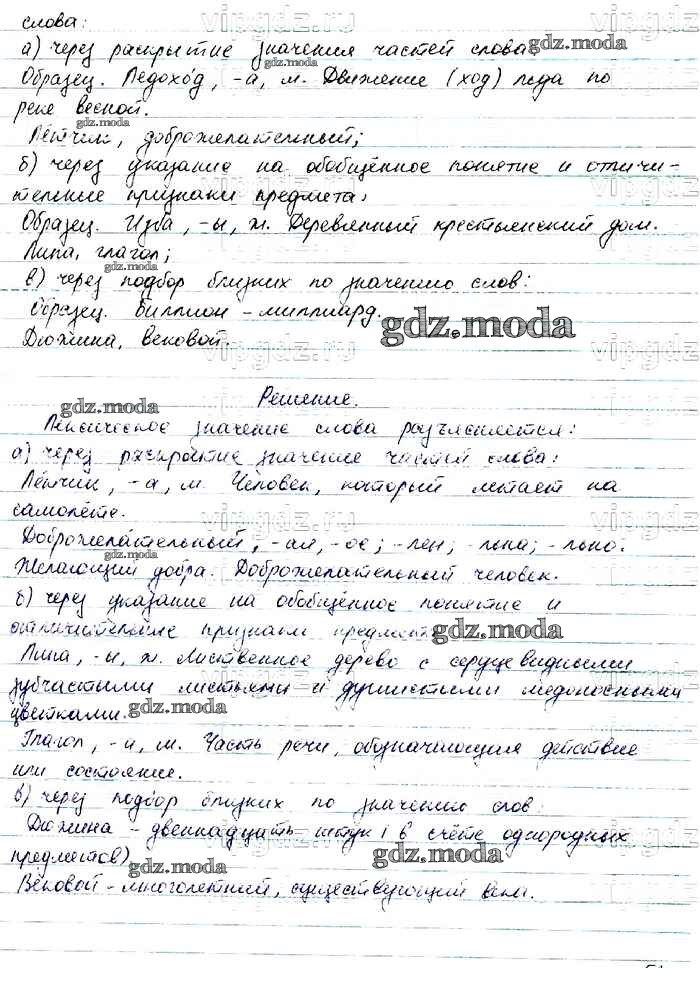 слова:
а) через раскрытие значения частей слова.
Образец. Ледохо́д, -а, м. Движение (ход) льда по
реке весной.
Лётчик, доброжелательный;
б) через указание на обобщённое понятие и отличи-
тельные признаки предмета:
Образец. Изба, -ы, ж. Деревянный крестьянский дом.
Липа, глагол;
в) через подбор близких по значению слов:
Образец. Биллион - миллиард.
Дюжина, вековой.
Решение.
Лексическое значение слова разъясняется:
а) через раскрытие значение частей слова:
Лётчик, -а, м. Человек, который летает на
самолёте.
Доброжела́тельный, -ая, -ое; -лен; льна; -льно.
Желающий добра. Доброжелательный человек.
б) через указание на обобщённое понятие и
отличительные признаки предмета
Липа, -ы, ж. Лиственное дерево с сердцевидными
зубчатыми листьями и душистыми медоносными
цветками.
Глагол, -а, м. Часть речи, обозначающая действие
или состояние.
в) через подбор близких по значению слов:
Дюжина - двенадцать штук в счёте однородных
предметов)
Вековой - многолетний, существующий века.
gdz.moda
vipgdz.ru